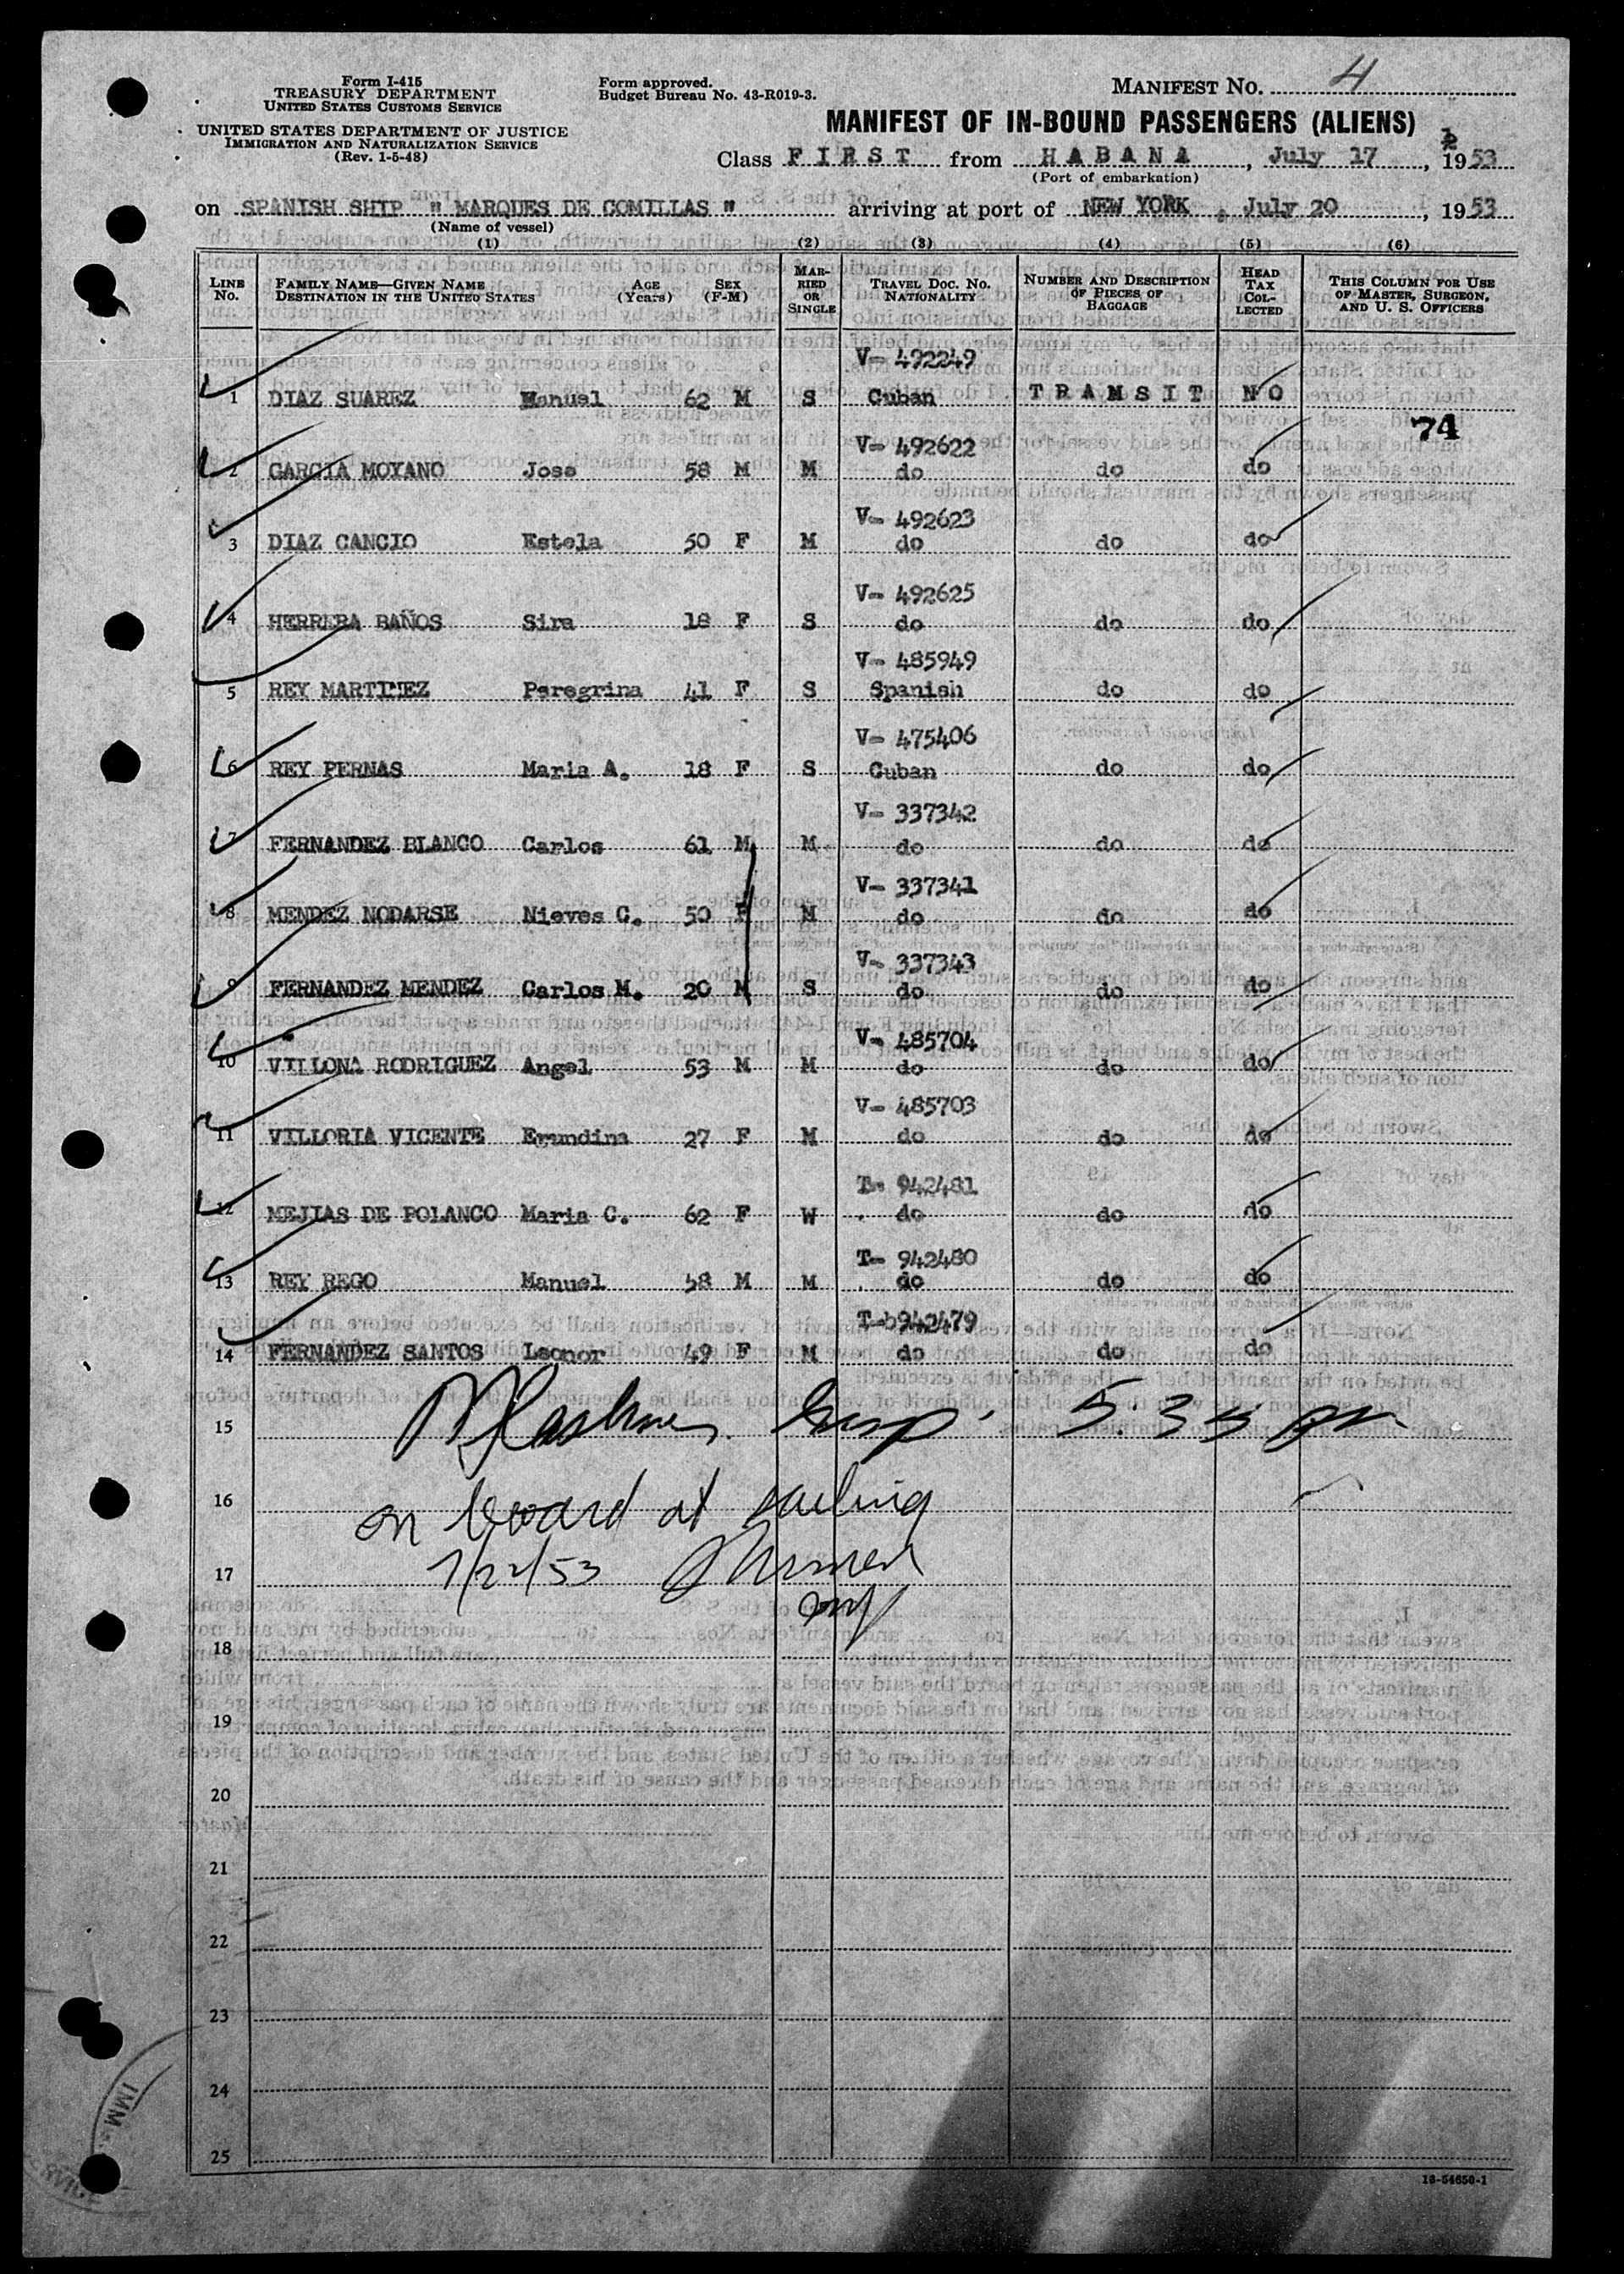 Form I-415
TREASURY DEPARTMENT
UNITED STATES CUSTOMS SERVICE
UNITED STATES DEPARTMENT OF JUSTICE
IMMIGRATION AND NATURALIZATION SERVICE
(Rev. 1-5-48)
Form approved.
Budget Bureau No. 43-R019-3.
MANIFEST No. 4
MANIFEST OF IN-BOUND PASSENGERS (ALIENS)
Class FIRST from HABANA, July 17, 1953
(Port of embarkation)
on SPANISH SHIP "MARQUES DE COMILLAS" arriving at port of NEW YORK, July 20, 1953
(Name of vessel)
(1) (2) (3) (4) (5) (6)
LINE No. FAMILY NAME—GIVEN NAME DESTINATION IN THE UNITED STATES AGE (Years) SEX (F-M) MARRIED OR SINGLE TRAVEL DOC. No. NATIONALITY NUMBER AND DESCRIPTION OF PIECES OF BAGGAGE HEAD TAX COLLECTED THIS COLUMN FOR USE OF MASTER, SURGEON, AND U. S. OFFICERS
V- 492249
1 DIAZ SUAREZ Manuel 62 M S Cuban TRAMSIT NO
74
V- 492622
2 GARCIA MOYANO Jose 58 M M do do do
V- 492623
3 DIAZ CANCIO Estela 50 F M do do do
V- 492625
4 HERRERA BAÑOS Sira 18 F S do do do
V- 485949
5 REY MARTINEZ Peregrina 41 F S Spanish do do
V- 475406
6 REY PERNAS Maria A. 18 F S Cuban do do
V- 337342
7 FERNANDEZ BLANCO Carlos 61 M M do do do
V- 337341
8 MENDEZ NODARSE Nieves C. 50 F M do do do
V- 337343
9 FERNANDEZ MENDEZ Carlos M. 20 M S do do do
V- 485704
10 VILLONA RODRIGUEZ Angel 53 M M do do do
V- 485703
11 VILLORIA VICENTE Erundina 27 F M do do do
T- 942481
12 MEJIAS DE POLANCO Maria C. 62 F W do do do
T- 942480
13 REY REGO Manuel 58 M M do do do
T- 942479
14 FERNANDEZ SANTOS Leonor 49 F M do do do
15 Insp. 535 pm
16 on board at sailing
17 7/22/53
18
19
20
21
22
23
24
25
IMM.
16-54650-1